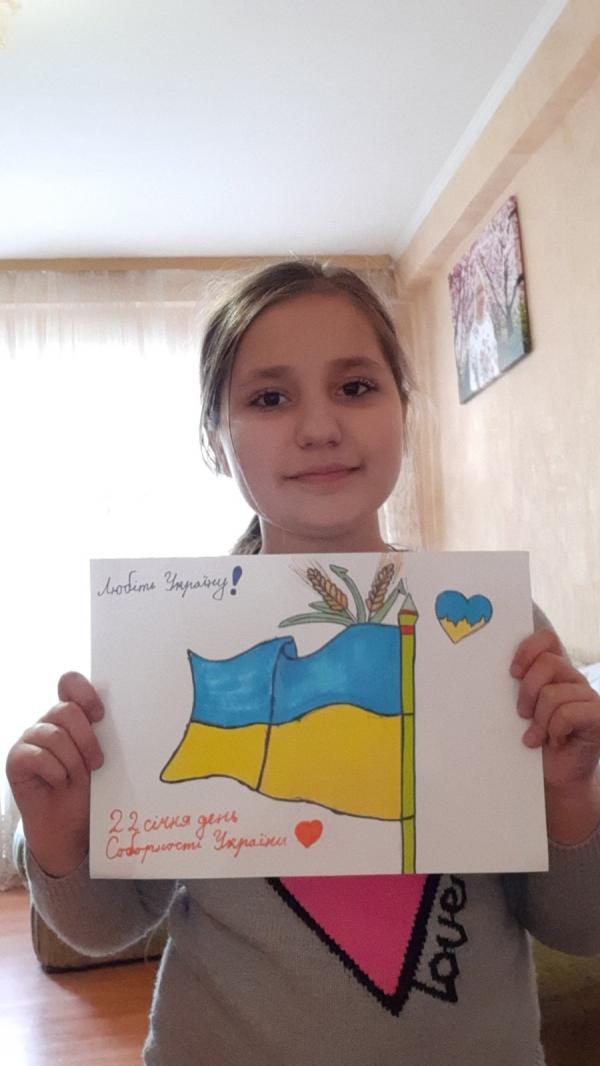 Любіть Україну!
22 січня день
Соборності України
Love